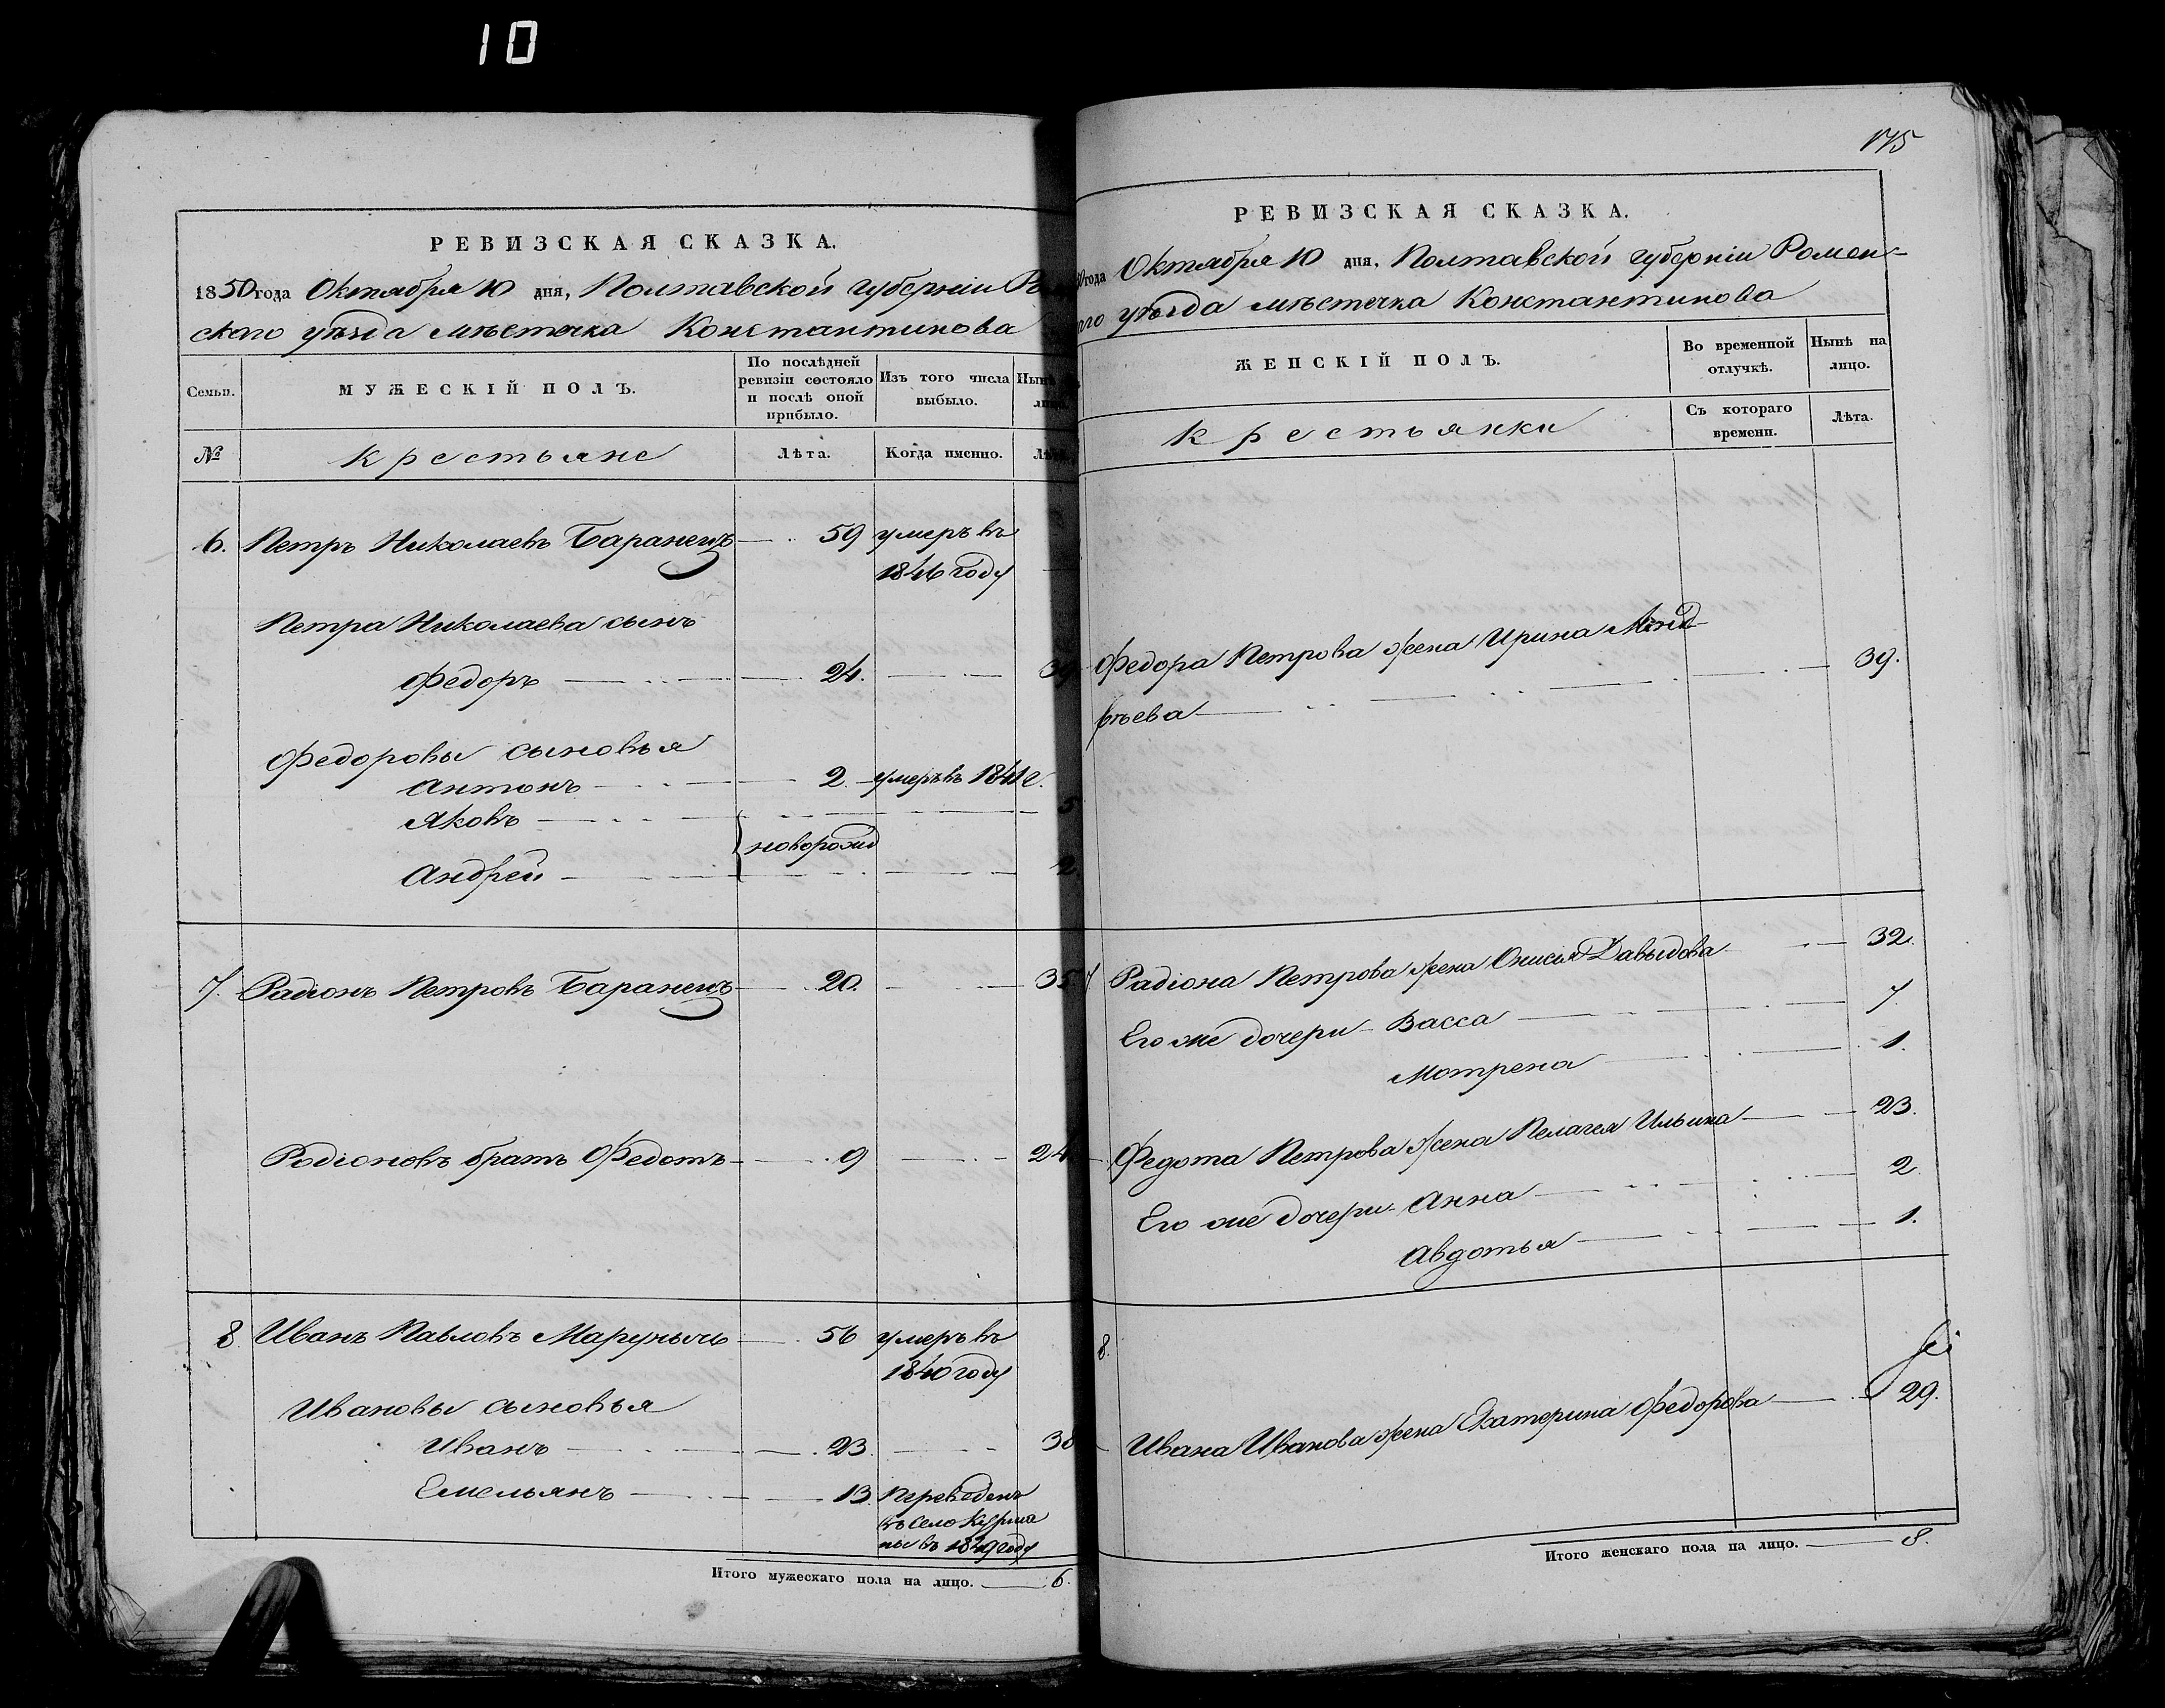 10
РЕВИЗСКАЯ СКАЗКА.
1850 года Октября 10 дня, Полтавской губерніи
скаго уѣзда мѣстечка Константинова
Семьи.
МУЖЕСКІЙ ПОЛЪ.
По послѣдней
ревизіи состояло
и послѣ оной
прибыло.
Изъ того числа
выбыло.
№
Крестьяне
Лѣта.
Когда именно.
6. Петръ Николаевъ Баранецъ 59 умеръ въ
1846 году
Петра Николаева сынъ
Федоръ 24. 39
Федоровы сыновья
Антонъ 2. умеръ въ 1841 г.
Яковъ 5
новорожд
Андрей 2
7. Радіонъ Петровъ Баранецъ 20. 35
Родіоновъ братъ Федотъ 9 24
8. Иванъ Павловъ Марунычъ 56 умеръ въ
1840 году
Ивановы сыновья
Иванъ 23. 38
Емельянъ 13. Переведенъ
въ село Курма
ны въ 1849 году
Итого мужескаго пола на лицо. 6.
175
РЕВИЗСКАЯ СКАЗКА.
года Октября 10 дня, Полтавской губерніи Ромен-
уѣзда мѣстечка Константинова
ЖЕНСКІЙ ПОЛЪ.
Во временной
отлучкѣ.
Нынѣ на
лицо.
Крестьянки
Съ котораго
времени.
Лѣта.
Федора Петрова жена Ирина
39.
7 Радіона Петрова жена Онисія Давыдова 32.
Его же дочери Васса 7
Мотрена 1.
Федота Петрова жена Пелагея Ильина 23.
Его же дочери Анна 2.
Авдотья 1.
8.
Ивана Иванова жена Екатерина Федорова 29.
Итого женскаго пола на лицо. 8.